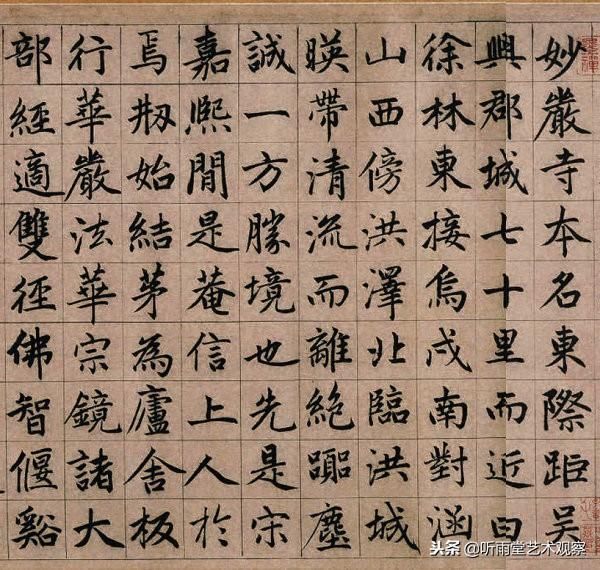 妙嚴寺本名東際距吳
興郡城七十里而近曰
徐林東接烏戍南對涵
山西傍洪澤北臨洪城
暎帶清流而離絕囂塵
誠一方勝境也先是宋
嘉熙間是菴信上人於
焉刱始結茅為廬舍板
行華嚴法華宗鏡諸大
部經適雙徑佛智偃谿
头条 @听雨堂艺术观察